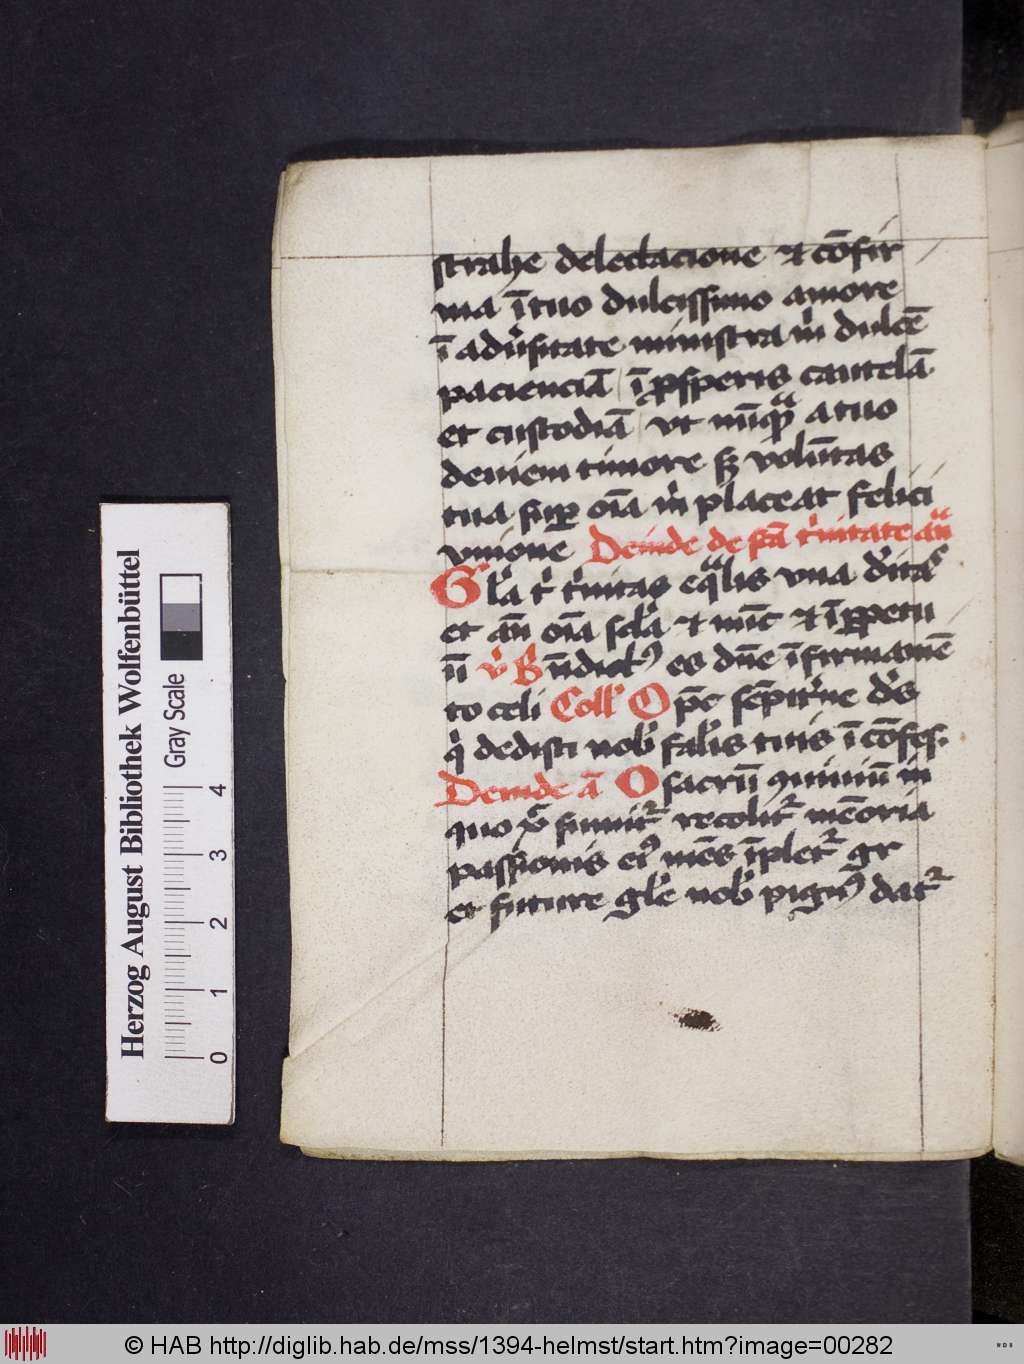 strahe delectacione et cōfir
ma ī tuo dulcissimo amore
ī adu̓sitate ministra m̓ dulcē
pacienciā ī ꝓsperis cautelā
et custodiā vt nūqᷓ a tuo
deuiem timore sꝫ volūtas
tua suꝑ oīa m̓ placeat felici
vnione Deinde de sc̄a t̓nitate an̄
Gl̓a t̓ t̓nitas eqᷓlis vna d̓itas
et an̄ oīa sc̄la et nūc et ī ꝑpetu
ū v̓ B̓n̄dictꝰ es dn̄e ī firmamē
to celi Coll̓ O p̄c sēpit̓ne d̓s
q̓ dedisti nob̓ fal̓is tuis ī cōfes.
Deinde ā O sacrū ꝯuiuiū in
quo xp̄c sumit᷑ recolit᷑ mēoria
passionis eiꝰ mēs īplet᷑ gr
et future gl̓e nob̓ pignꝰ dat᷑
Herzog August Bibliothek Wolfenbüttel
Gray Scale
0 1 2 3 4
© HAB http://diglib.hab.de/mss/1394-helmst/start.htm?image=00282